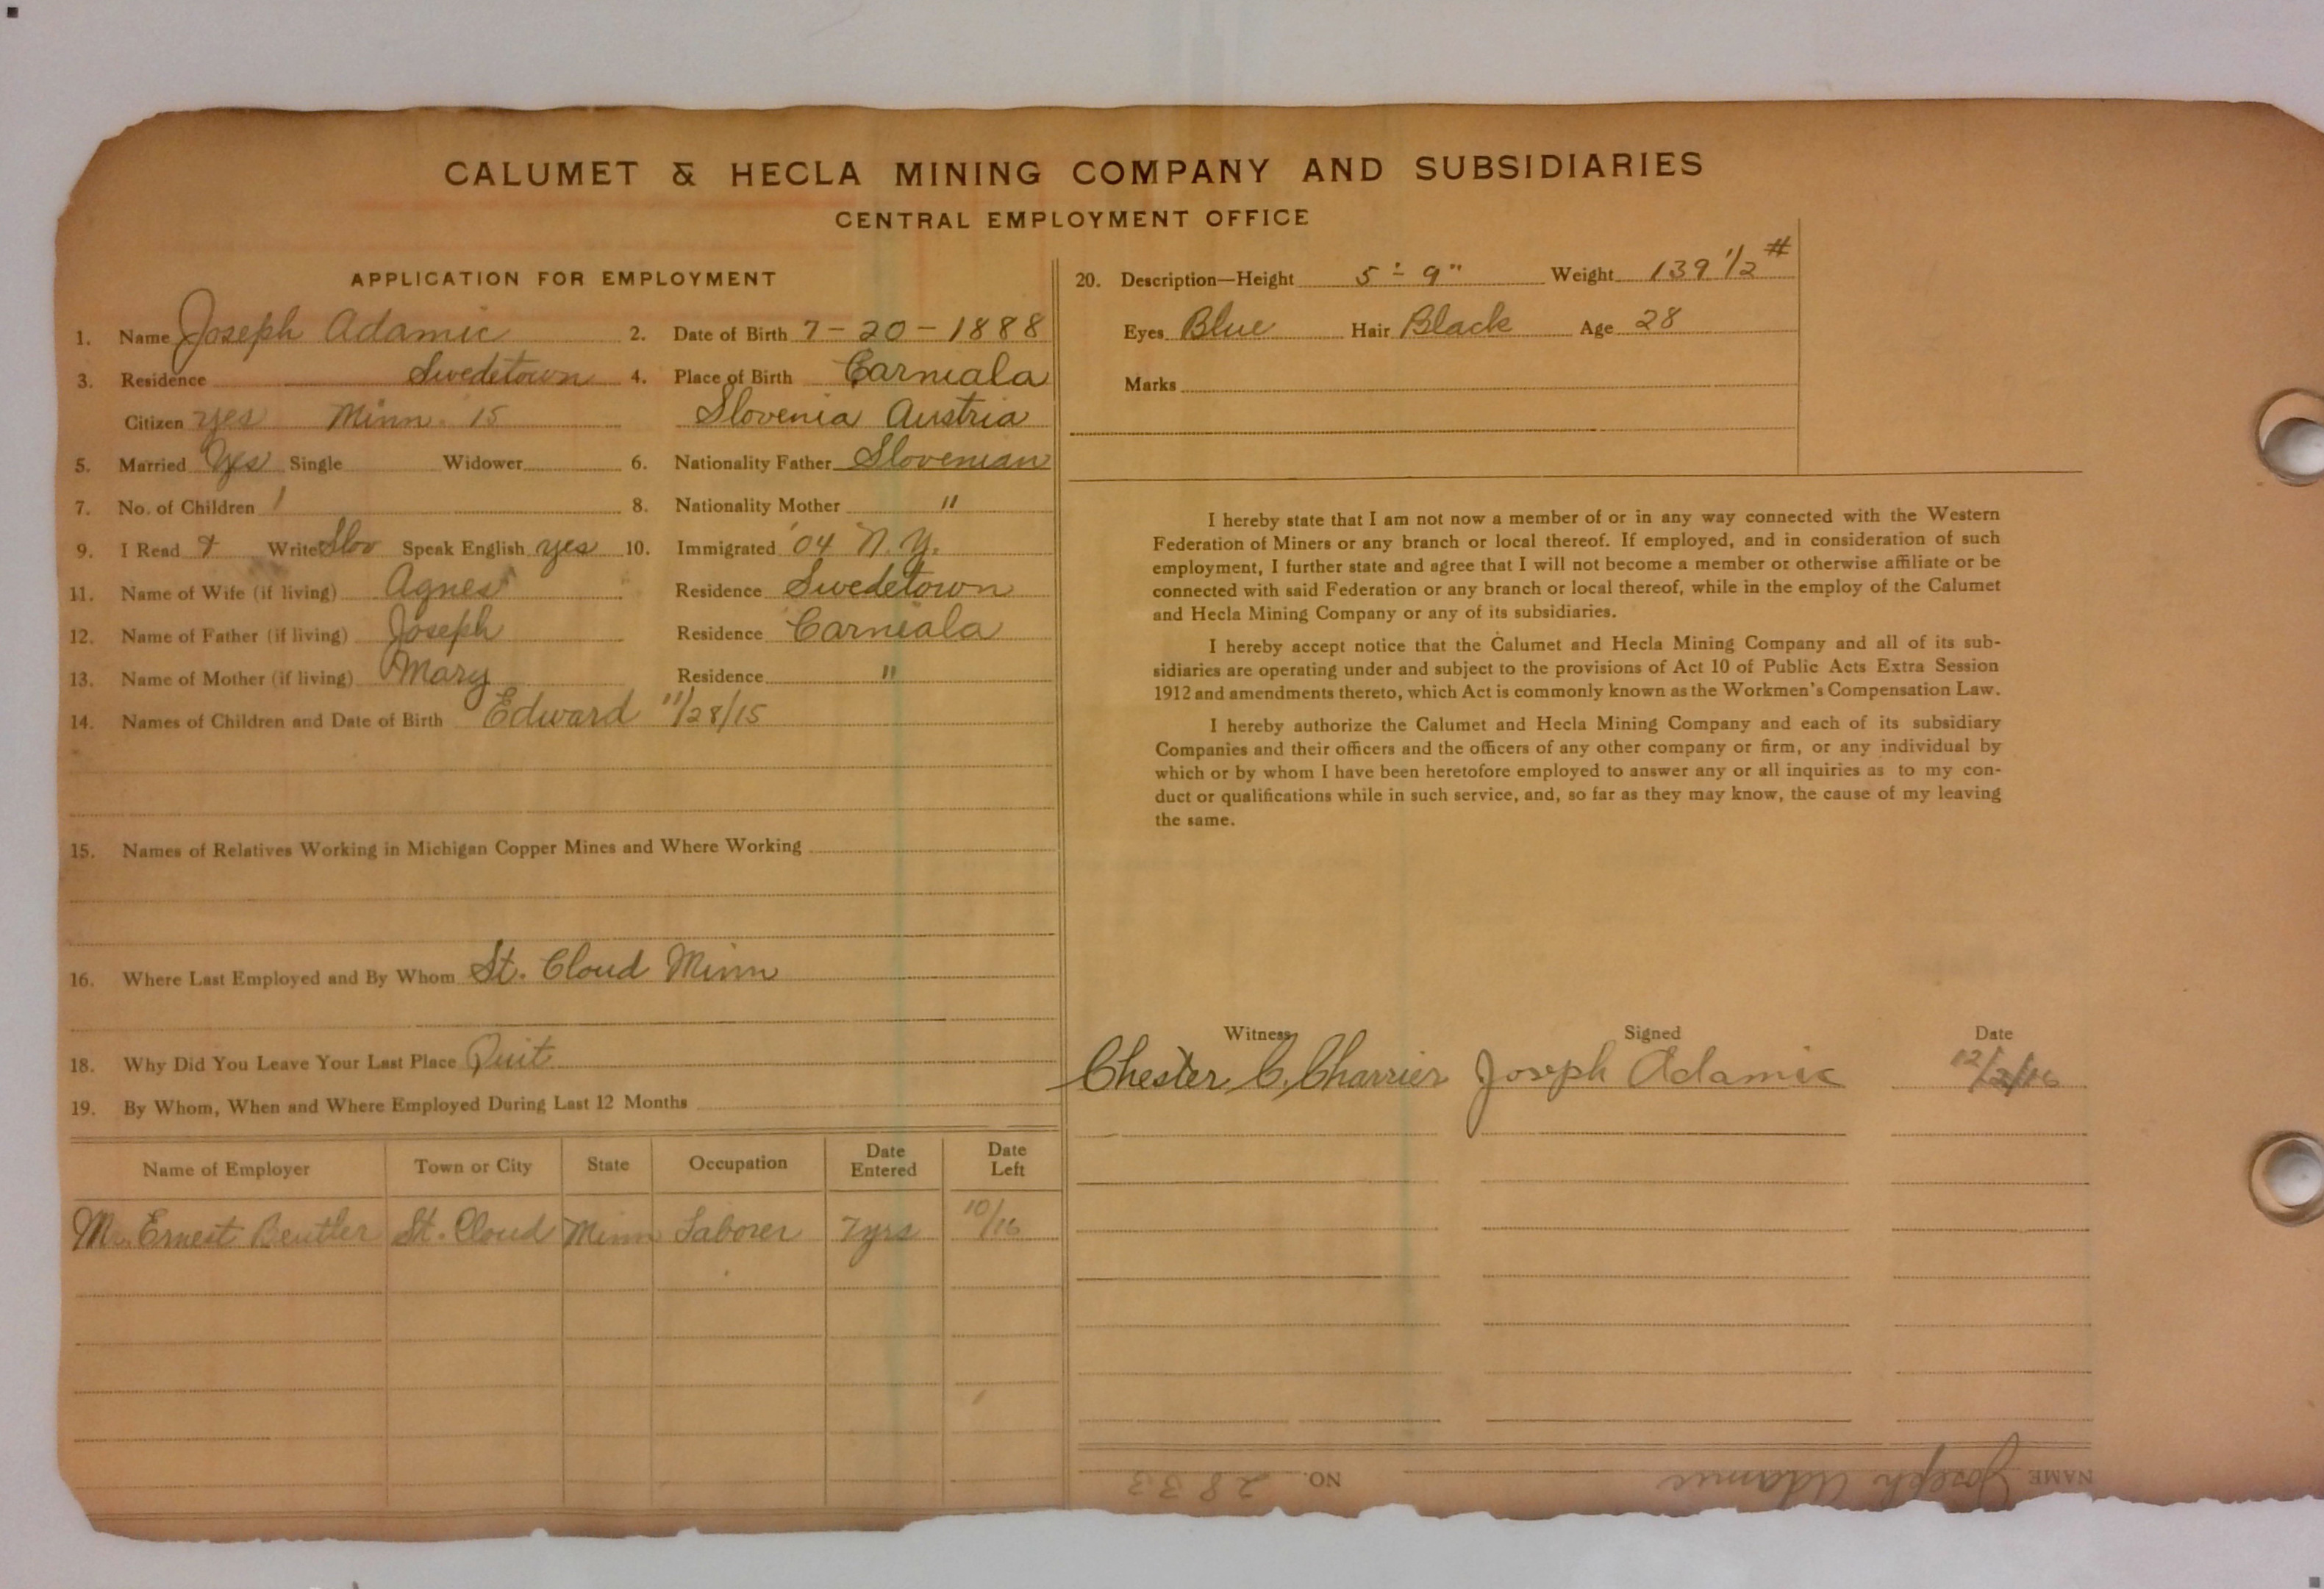 CALUMET & HECLA MINING COMPANY AND SUBSIDIARIES
CENTRAL EMPLOYMENT OFFICE
APPLICATION FOR EMPLOYMENT
1. Name Joseph Adamic 2. Date of Birth 7-20-1888
3. Residence Swedetown 4. Place of Birth Carniala
Citizen yes Minn. 15 Slovenia Austria
5. Married Yes Single Widower 6. Nationality Father Slovenian
7. No. of Children 1 8. Nationality Mother "
9. I Read & Write Slov Speak English yes 10. Immigrated '04 N.Y.
11. Name of Wife (if living) Agnes Residence Swedetown
12. Name of Father (if living) Joseph Residence Carniala
13. Name of Mother (if living) Mary Residence "
14. Names of Children and Date of Birth Edward 11/28/15
15. Names of Relatives Working in Michigan Copper Mines and Where Working
16. Where Last Employed and By Whom St. Cloud Minn
18. Why Did You Leave Your Last Place Quit
19. By Whom, When and Where Employed During Last 12 Months
Name of Employer Town or City State Occupation Date Entered Date Left
Mr. Ernest Beutler St. Cloud Minn Laborer 7yrs 10/16
20. Description—Height 5'-9" Weight 139 1/2 #
Eyes Blue Hair Black Age 28
Marks
I hereby state that I am not now a member of or in any way connected with the Western
Federation of Miners or any branch or local thereof. If employed, and in consideration of such
employment, I further state and agree that I will not become a member or otherwise affiliate or be
connected with said Federation or any branch or local thereof, while in the employ of the Calumet
and Hecla Mining Company or any of its subsidiaries.
I hereby accept notice that the Calumet and Hecla Mining Company and all of its sub-
sidiaries are operating under and subject to the provisions of Act 10 of Public Acts Extra Session
1912 and amendments thereto, which Act is commonly known as the Workmen's Compensation Law.
I hereby authorize the Calumet and Hecla Mining Company and each of its subsidiary
Companies and their officers and the officers of any other company or firm, or any individual by
which or by whom I have been heretofore employed to answer any or all inquiries as to my con-
duct or qualifications while in such service, and, so far as they may know, the cause of my leaving
the same.
Witness Signed Date
Chester C. Charrier Joseph Adamic 12/2/16
NAME Joseph Adamic NO. 2833